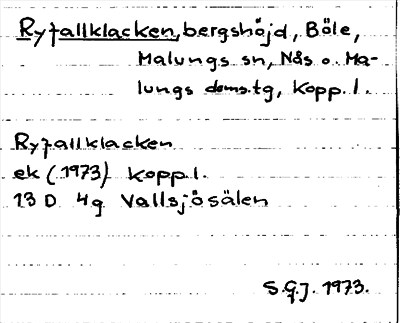 Ryfallklacken, bergshöjd, Böle,
Malungs sn, Nås o. Ma-
lungs doms.tg, Kopp. l.
Ryfallklacken
ek (1973) Kopp. l.
13 D 4g Vallsjösälen
S.G.J. 1973.